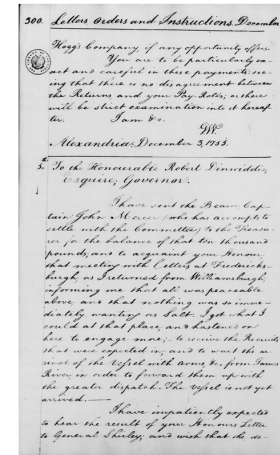 300. Letters Orders and Instructions December
Hogg's Company if any opportunity offers.
You are to be particularly ex-
act and careful in these payments: see-
ing that there is no disagreement between
the Returns and your Pay Rolls; as there
will be strict examination into it hereaf-
ter. I am &c.
GW
Alexandria: December 5, 1755.
5. To the Honourable Robert Dinwiddie,
Esquire, Governor.
I have sent the Bearer Cap-
tain John Mercer (who has accompts to
settle with the Committee) to the Treasu-
rer for the balance of that ten thousand
pounds; and to acquaint your Honour,
that meeting with Letters at Fredericks-
burgh as I returned from Williamsburgh,
informing me that all was peaceable
above, and that nothing was so imme-
diately wanting as Salt. I got what I
could at that place, and hastened on
here to engage more; to receive the Recruits
that were expected in; and to wait the ar-
rival of the Vessel with arms &c. from James
River, in order to forward them up with
the greater dispatch. The Vessel is not yet
arrived.
I have impatiently expected
to hear the result of your Honours Letter
to General Shirley; and wish that the de-